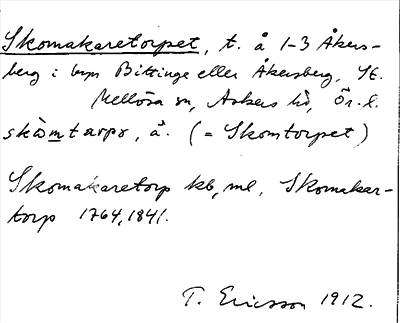 Skomakaretorpet, t. å 1-3 Åkers-
berg i byn Bittinge eller Åkersberg, St.
Mellösa sn, Askers hd, Ör. l.
skòmtarpə, å. (= Skomtorpet)
Skomakaretorp kb, ml, Skomakar-
torp 1764, 1841.
T. Ericsson 1912.